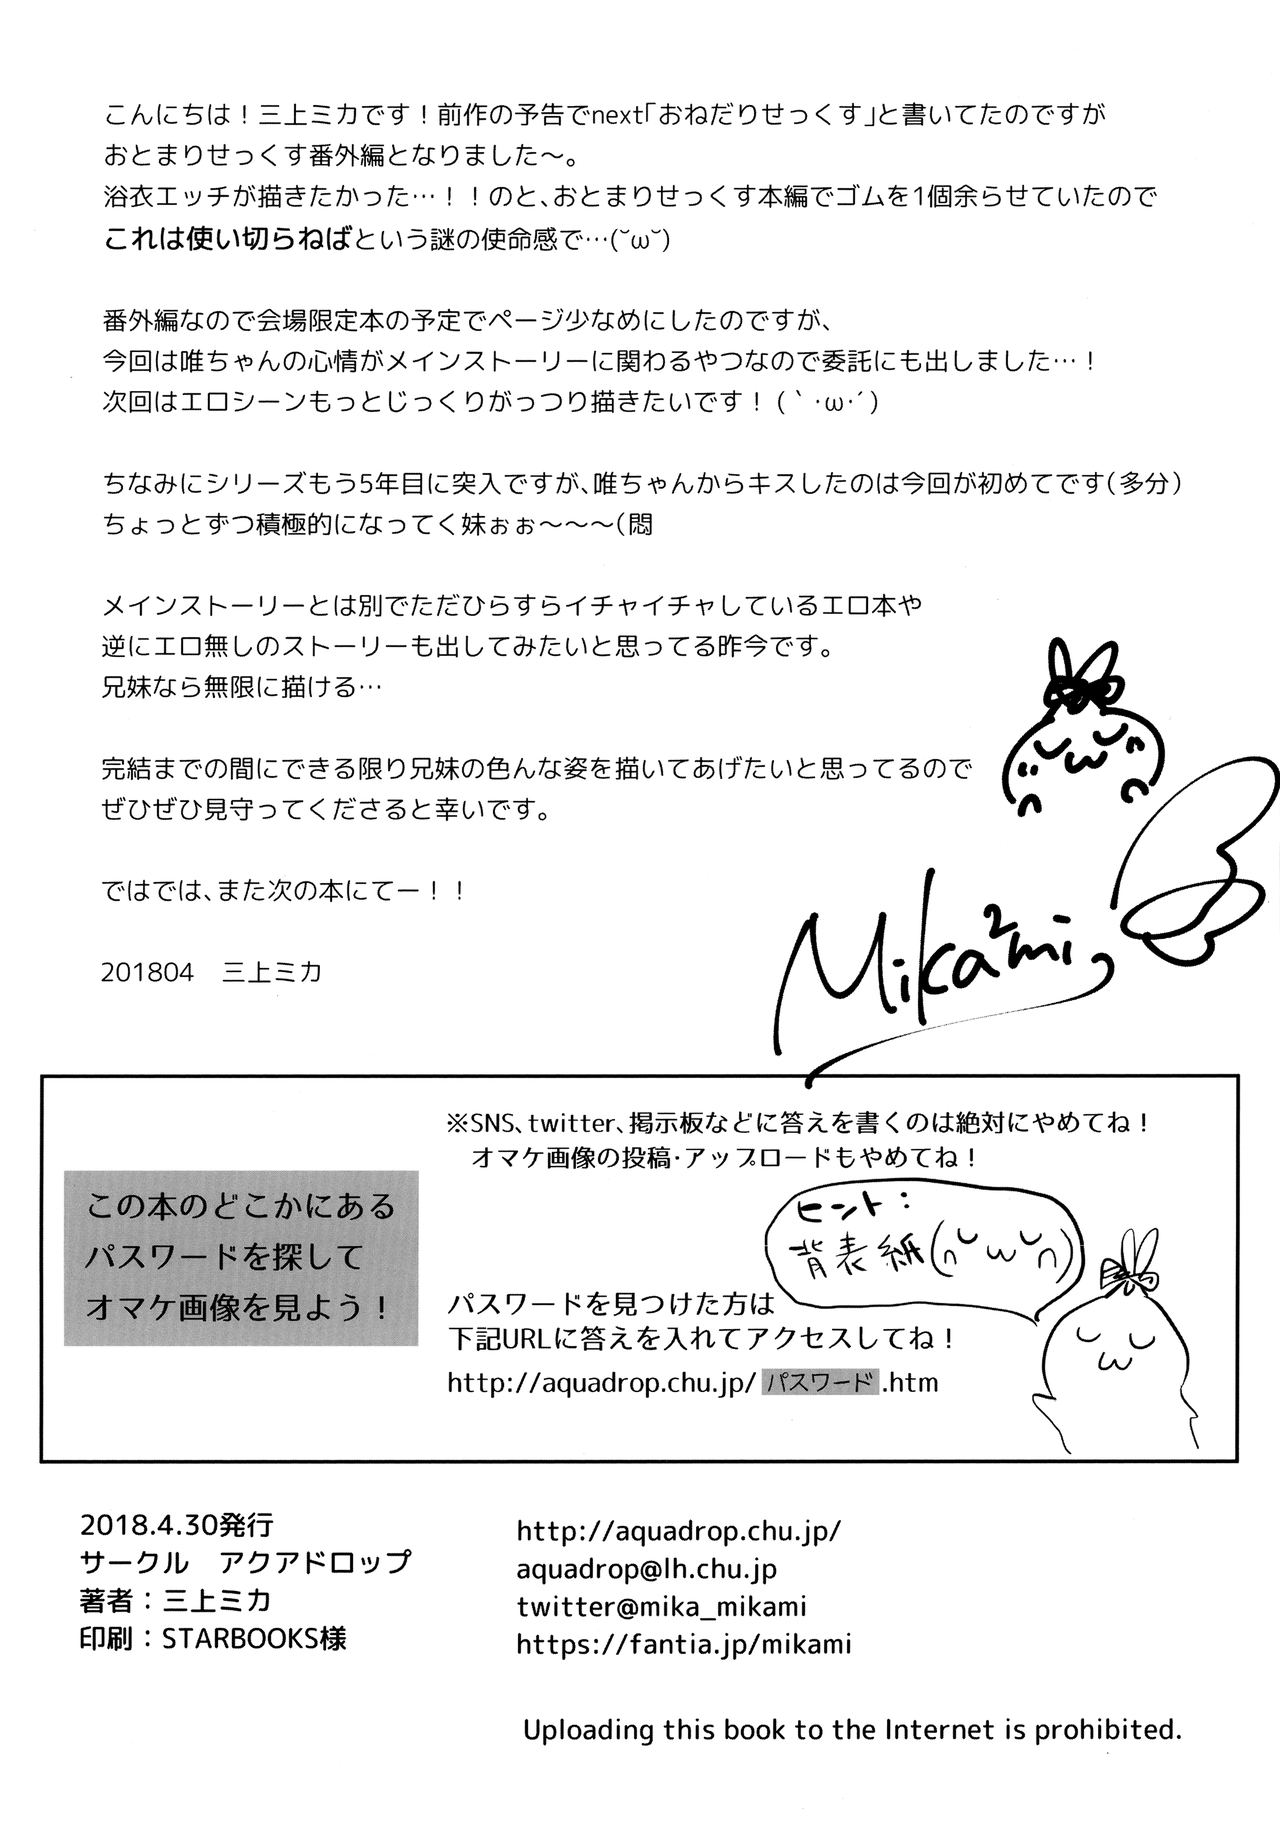 こんにちは！三上ミカです！前作の予告でnext「おねだりせっくす」と書いてたのですが
おとまりせっくす番外編となりました～。
浴衣エッチが描きたかった…！！のと、おとまりせっくす本編でゴムを1個余らせていたので
これは使い切らねばという謎の使命感で…(˘ω˘)
番外編なので会場限定本の予定でページ少なめにしたのですが、
今回は唯ちゃんの心情がメインストーリーに関わるやつなので委託にも出しました…！
次回はエロシーンもっとじっくりがっつり描きたいです！(｀･ω･´)
ちなみにシリーズもう5年目に突入ですが、唯ちゃんからキスしたのは今回が初めてです(多分)
ちょっとずつ積極的になってく妹ぉぉ～～～(悶
メインストーリーとは別でただひらすらイチャイチャしているエロ本や
逆にエロ無しのストーリーも出してみたいと思ってる昨今です。
兄妹なら無限に描ける…
完結までの間にできる限り兄妹の色んな姿を描いてあげたいと思ってるので
ぜひぜひ見守ってくださると幸いです。
ではでは、また次の本にてー！！
201804　三上ミカ
Mika²mi
※SNS、twitter、掲示板などに答えを書くのは絶対にやめてね！
オマケ画像の投稿･アップロードもやめてね！
この本のどこかにある
パスワードを探して
オマケ画像を見よう！
ヒント：
背表紙(∩˘ω˘∩)
パスワードを見つけた方は
下記URLに答えを入れてアクセスしてね！
http://aquadrop.chu.jp/ パスワード .htm
2018.4.30発行
サークル　アクアドロップ
著者：三上ミカ
印刷：STARBOOKS様
http://aquadrop.chu.jp/
aquadrop@lh.chu.jp
twitter@mika_mikami
https://fantia.jp/mikami
Uploading this book to the Internet is prohibited.